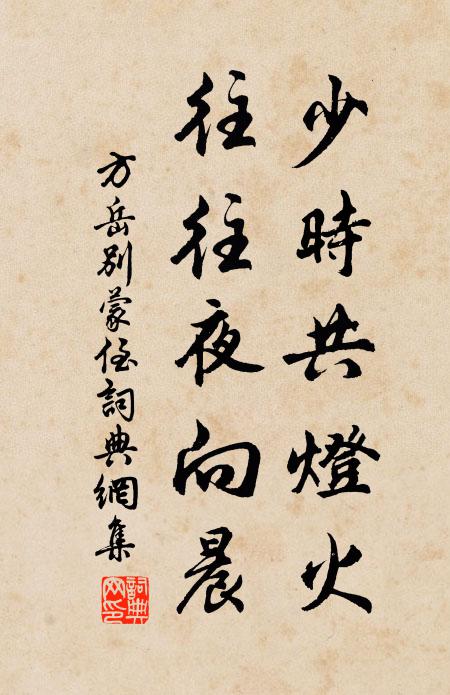 少時共燈火
往往夜向晨
方岳別蒙姪詞典網集
詞典網印